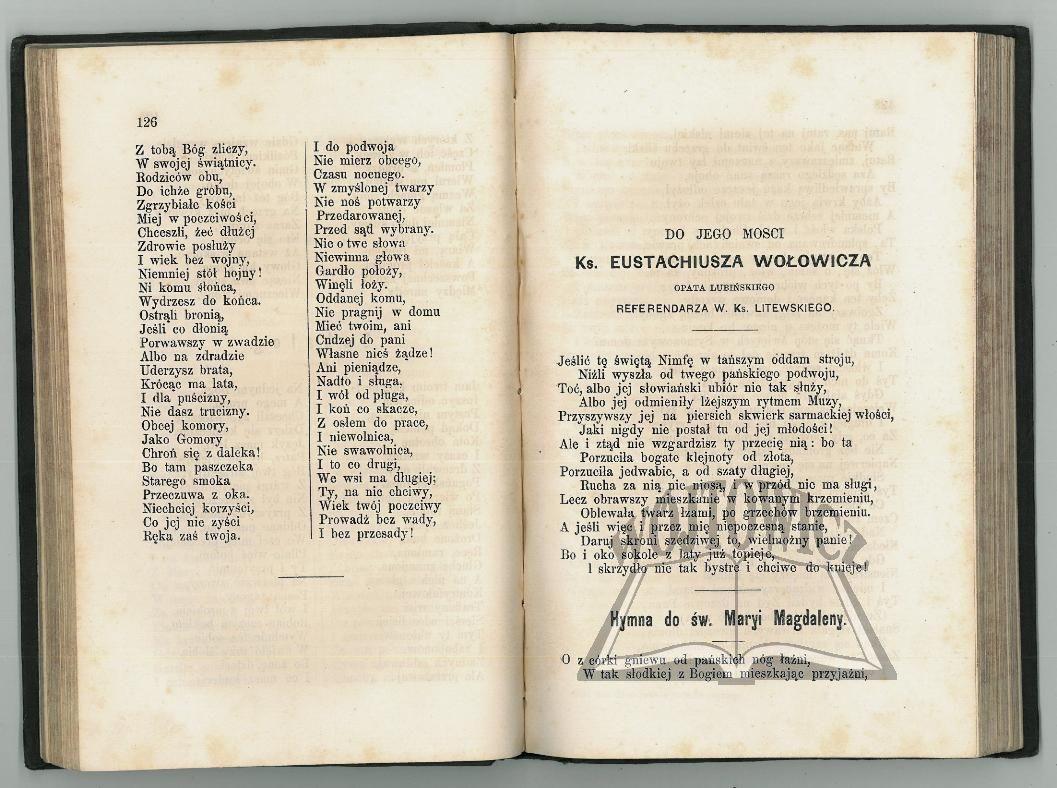 126
Z tobą Bóg zliczy,
W swojej świątnicy.
Rodziców obu,
Do ichże grobu,
Zgrzybiałe kości
Miej w poczciwości,
Chceszli, żeć dłużej
Zdrowie posłuży
I wiek bez wojny,
Niemniej stół hojny!
Ni komu słońca,
Wydrzesz do końca.
Ostrąli bronią,
Jeśli co dłonią
Porwawszy w zwadzie
Albo na zdradzie
Uderzysz brata,
Krócąc ma lata,
I dla puścizny,
Nie dasz trucizny.
Obcej komory,
Jako Gomory
Chroń się z daleka!
Bo tam paszczeka
Starego smoka
Przeczuwa z oka.
Niechciej korzyści,
Co jej nie zyści
Ręka zaś twoja.
I do podwoja
Nie mierz obcego,
Czasu nocnego.
W zmyślonej twarzy
Nie noś potwarzy
Przedarowanej,
Przed sąd wybrany.
Nic o twe słowa
Niewinna głowa
Gardło położy,
Winęli łoży.
Oddanej komu,
Nie pragnij w domu
Mieć twoim, ani
Cndzej do pani
Własne nieś żądze!
Ani pieniądze,
Nadto i sługa,
I wół od pługa,
I koń co skacze,
Z osłem do prace,
I niewolnica,
Nie swawolnica,
I to co drugi,
We wsi ma długiej;
Ty, na nic chciwy,
Wiek twój poczciwy
Prowadź bez wady,
I bez przesady!
DO JEGO MOSCI
Ks. EUSTACHIUSZA WOŁOWICZA
OPATA LUBIŃSKIEGO
REFERENDARZA W. Ks. LITEWSKIEGO.
Jeślić tę świętą Nimfę w tańszym oddam stroju,
Niźli wyszła od twego pańskiego podwoju,
Toć, albo jej słowiański ubiór nie tak służy,
Albo jej odmieniły lżejszym rytmem Muzy,
Przyszywszy jej na piersich skwierk sarmackiej włości,
Jaki nigdy nie postał tu od jej młodości!
Ale i ztąd nie wzgardzisz ty przecię nią: bo ta
Porzuciła bogate klejnoty od złota,
Porzuciła jedwabie, a od szaty długiej,
Rucha za nią nie niosą, i w przód nic ma sługi,
Lecz obrawszy mieszkanie w kowanym krzemieniu,
Oblewała twarz łzami, po grzechów brzemieniu.
A jeśli więc i przez mię niepoczesną stanie,
Daruj skroni szedziwej to, wielmożny panie!
Bo i oko sokole z laty już topieje,
I skrzydło nie tak bystre i chciwe do knieje!
Hymna do św. Maryi Magdaleny.
O z córki gniewu od pańskich nóg łaźni,
W tak słodkiej z Bogiem mieszkając przyjaźni,
WÓJTOWICZ